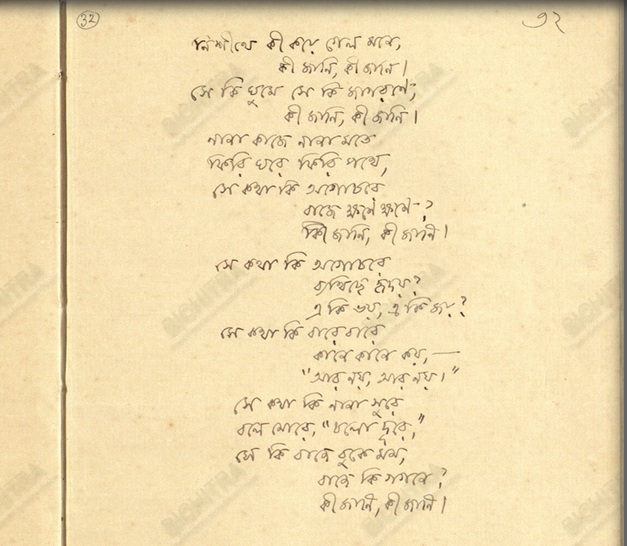 32
৩২
নিশীথে কী কয়ে গেল মনে,
কী জানি, কী জানি।
সে কি ঘুমে সে কি জাগরণে,
কী জানি, কী জানি।
নানা কাজে নানা মতে
ফিরি ঘরে ফিরি পথে,
সে কথা কি অগোচরে
বাজে ক্ষণে ক্ষণে?
কী জানি, কী জানি।
সে কথা কি অগোচরে
ব্যথিছে হৃদয়?
একি ভয়, একি জয়?
সে কথা কি বারে বারে
কানে কানে কয়,—
"আর নয়, আর নয়।"
সে কথা কি নানা সুরে
বলে মোরে, "চলো দূরে,"
সে কি বাজে বুকে মম,
বাজে কি গগনে?
কী জানি, কী জানি।
BICHITRA